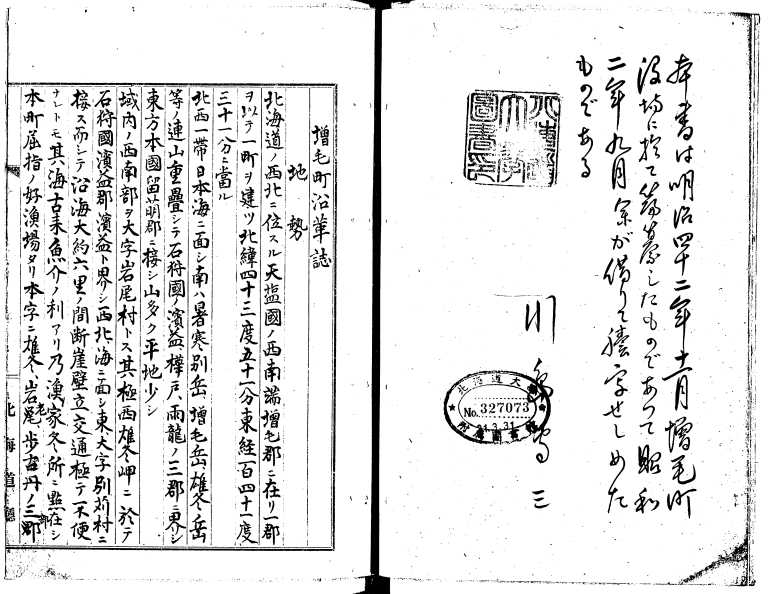 本書は明治四十二年十一月増毛町
役場に於て編纂したものであつて昭和
二年九月余が借りて謄字せしめた
ものである
北海道大學
No. 327073
附属圖書館
増毛町沿革誌
地勢
北海道ノ西北ニ位スル天塩國ノ西南端増毛郡ニ在リ一郡
ヲ以テ一町ヲ建ツ北緯四十三度五十一分東経百四十一度
三十一分ニ當ル
北西一帯日本海ニ面シ南ハ暑寒別岳増毛岳雄冬岳
等ノ連山重疊シテ石狩國ノ濱益樺戸雨龍ノ三郡ニ界シ
東方本國留萠郡ニ接シ山多ク平地少シ
域内ノ西南部ヲ大字岩尾村トス其極西雄冬岬ニ於テ
石狩國濱益郡濱益ト界シ西北海ニ面シ東大字別苅村ニ
接ス而シテ沿海大約六里ノ間断崖壁立交通極テ不便
ナレトモ其海古来魚介ノ利アリ乃漁家冬所ニ點在シ
本町屈指ノ好漁場タリ本字ニ雄冬、岩尾、歩古丹ノ三郡
北海道廳